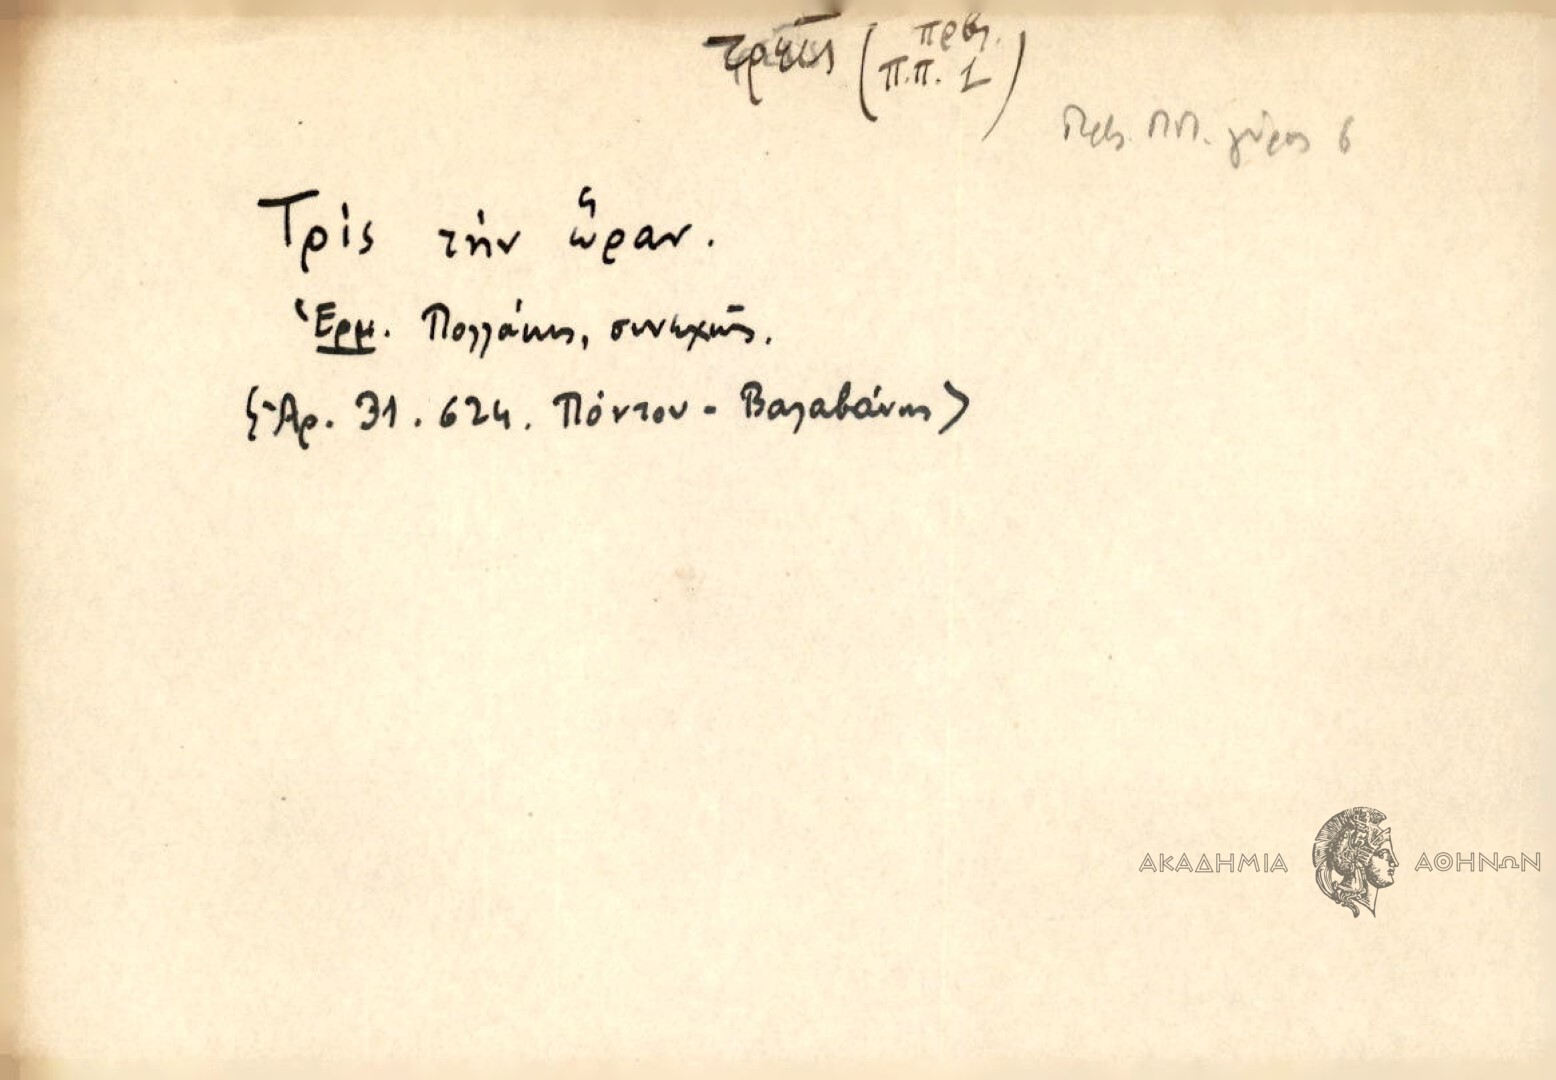 τρεῖς (πρβ. Π.Π. 1)
Πρβ. ΠΠ. γύρος 6
Τρὶς τὴν ὥραν.
Ἑρμ. Πολλάκις, συνεχῶς.
<Ἀρ. 31.624. Πόντου - Βαλαβάνης>
ΑΚΑΔΗΜΙΑ ΑΘΗΝΩΝ